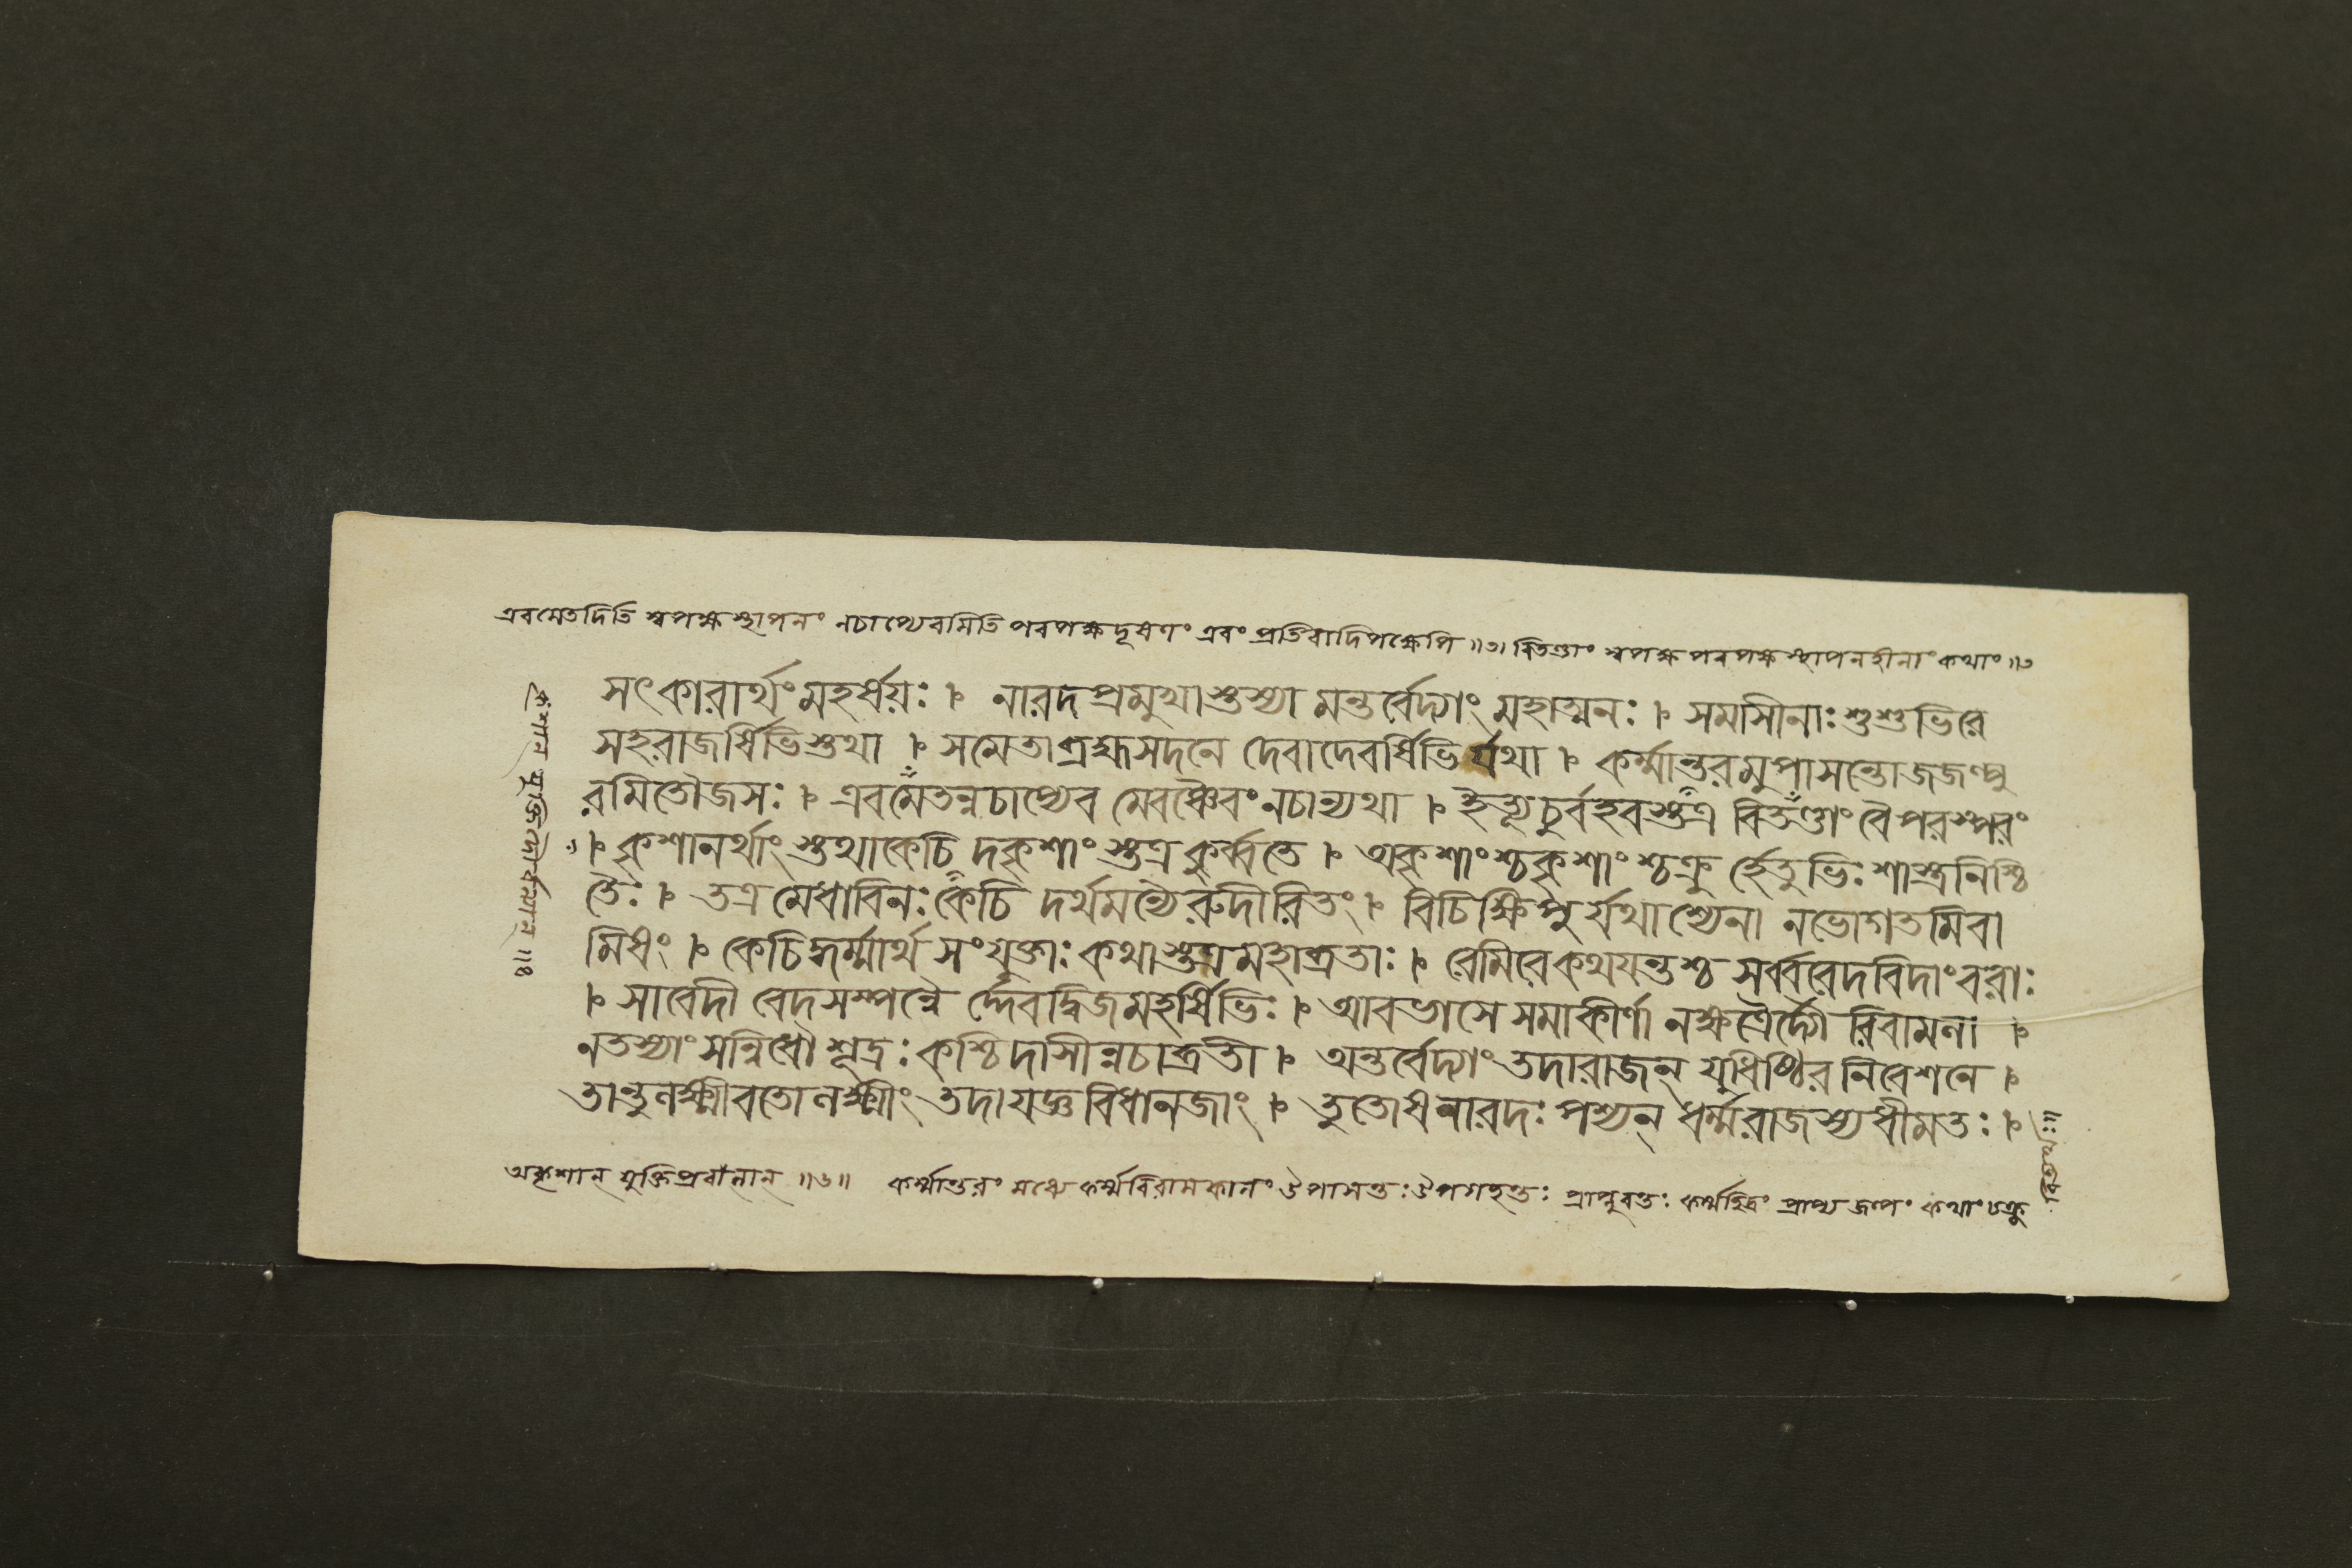 এবমেতদিতি স্বপক্ষস্থাপনং নচাপ্যেবমিতি পরপক্ষদূষণং এবং প্রতিবাদিপক্ষেপি ॥৩। বিতণ্ডাং স্বপক্ষ পরপক্ষ স্থাপনহীনাং কথাং ॥৩
সৎকারার্থং মহর্ষয়ঃ । নারদপ্রমুখাস্তস্যা মন্তর্বেদ্যাং মহাত্মনঃ । সমাসীনাঃ শুশুভিরে
সহরাজর্ষিভিস্তথা । সমেতাব্রহ্মসদনে দেবাদেবর্ষিভির্যথা । কর্ম্মান্তরমুপাসন্তোজজল্পু
রমিতৌজসঃ । এবমেতন্নচাপ্যেব মেবঞ্চৈবং নচান্যথা । ইত্যূচুর্বহবস্তত্র বিতণ্ডাং বৈ পরস্পরং
। কৃশানর্থাং স্তথাকেচি দকৃশাং স্তত্র কুর্ব্বতে । অকৃশাংশ্চ কৃশাংশ্চক্রু র্হেতুভিঃ শাস্ত্রনিশ্চি
তৈঃ । তত্র মেধাবিনঃ কেচি দর্থমন্যৈরুদীরিতং । বিচিক্ষিপুর্যথাশ্যেনা নভোগতমিবা
মিষং । কেচিদ্ধর্ম্মার্থ সংযুক্তাঃ কথাস্তত্র মহাব্রতাঃ । রেমিরেকথয়ন্তশ্চ সর্ব্ববেদবিদাংবরাঃ
। সাবেদী বেদসম্পন্নৈ র্দ্দেবদ্বিজমহর্ষিভিঃ । আবভাসে সমাকীর্ণা নক্ষত্রৈর্দ্যৌ রিবামলা ।
নতস্যাং সন্নিধৌ শূদ্রঃ কশ্চিদাসীন্নচাব্রতী । অন্তর্বেদ্যাং তদারাজন্ যুধিষ্ঠির নিবেশনে ।
তান্তুলক্ষ্মীবতোলক্ষ্মীং তদাযজ্ঞবিধানজাং । তুতোষনারদঃ পশ্যন্ ধর্ম্মরাজস্যধীমতঃ ।
অকৃশান্ যুক্তিপ্রধানান্ ॥৬॥ কর্ম্মান্তরং মধ্যে কর্ম্মবিরামকালং উপাসন্তঃ উপগচ্ছন্তঃ প্রাপ্নুবন্তঃ কর্ম্মছিদ্রং প্রাপ্য জল্পং কথাংচক্রু